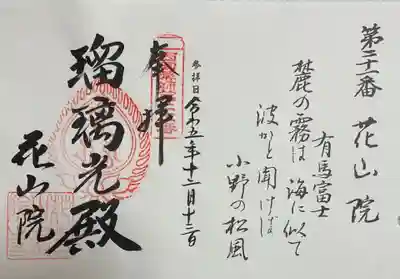 第二十一番 花山院
有馬富士
麓の霧は 海に似て
波かと聞けば
小野の松風
参拝日 令和五年十二月十三日
奉拝
瑠璃光殿
花山院